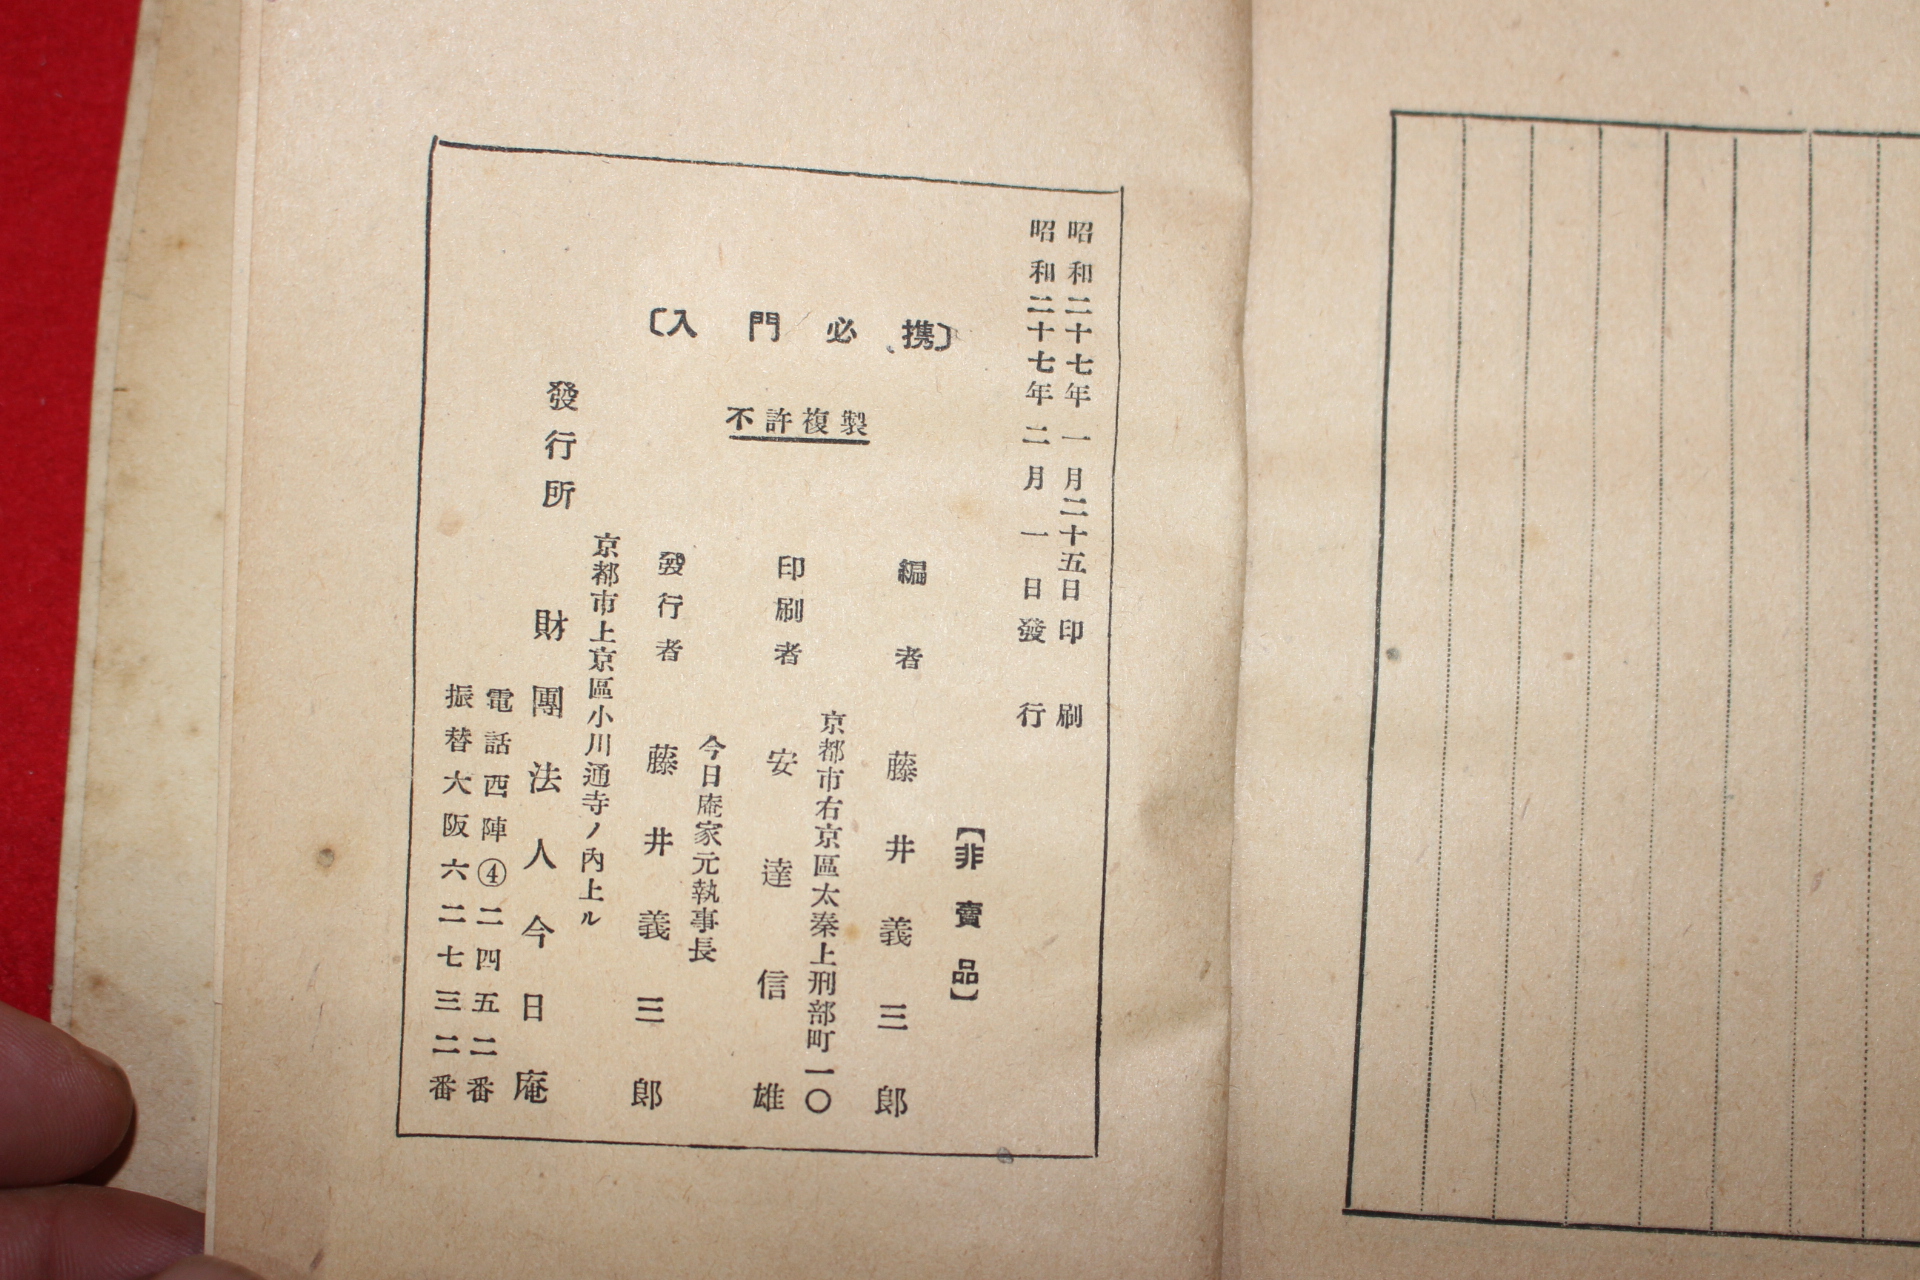 昭和二十七年一月二十五日印刷
昭和二十七年二月一日發行
〔入門必携〕
不許複製
【非賣品】
編者 藤井義三郎
京都市右京區太秦上刑部町一〇
印刷者 安達信雄
今日庵家元執事長
發行者 藤井義三郎
京都市上京區小川通寺ノ內上ル
發行所 財團法人今日庵
電話西陣④二四五二番
振替大阪六二七三二番